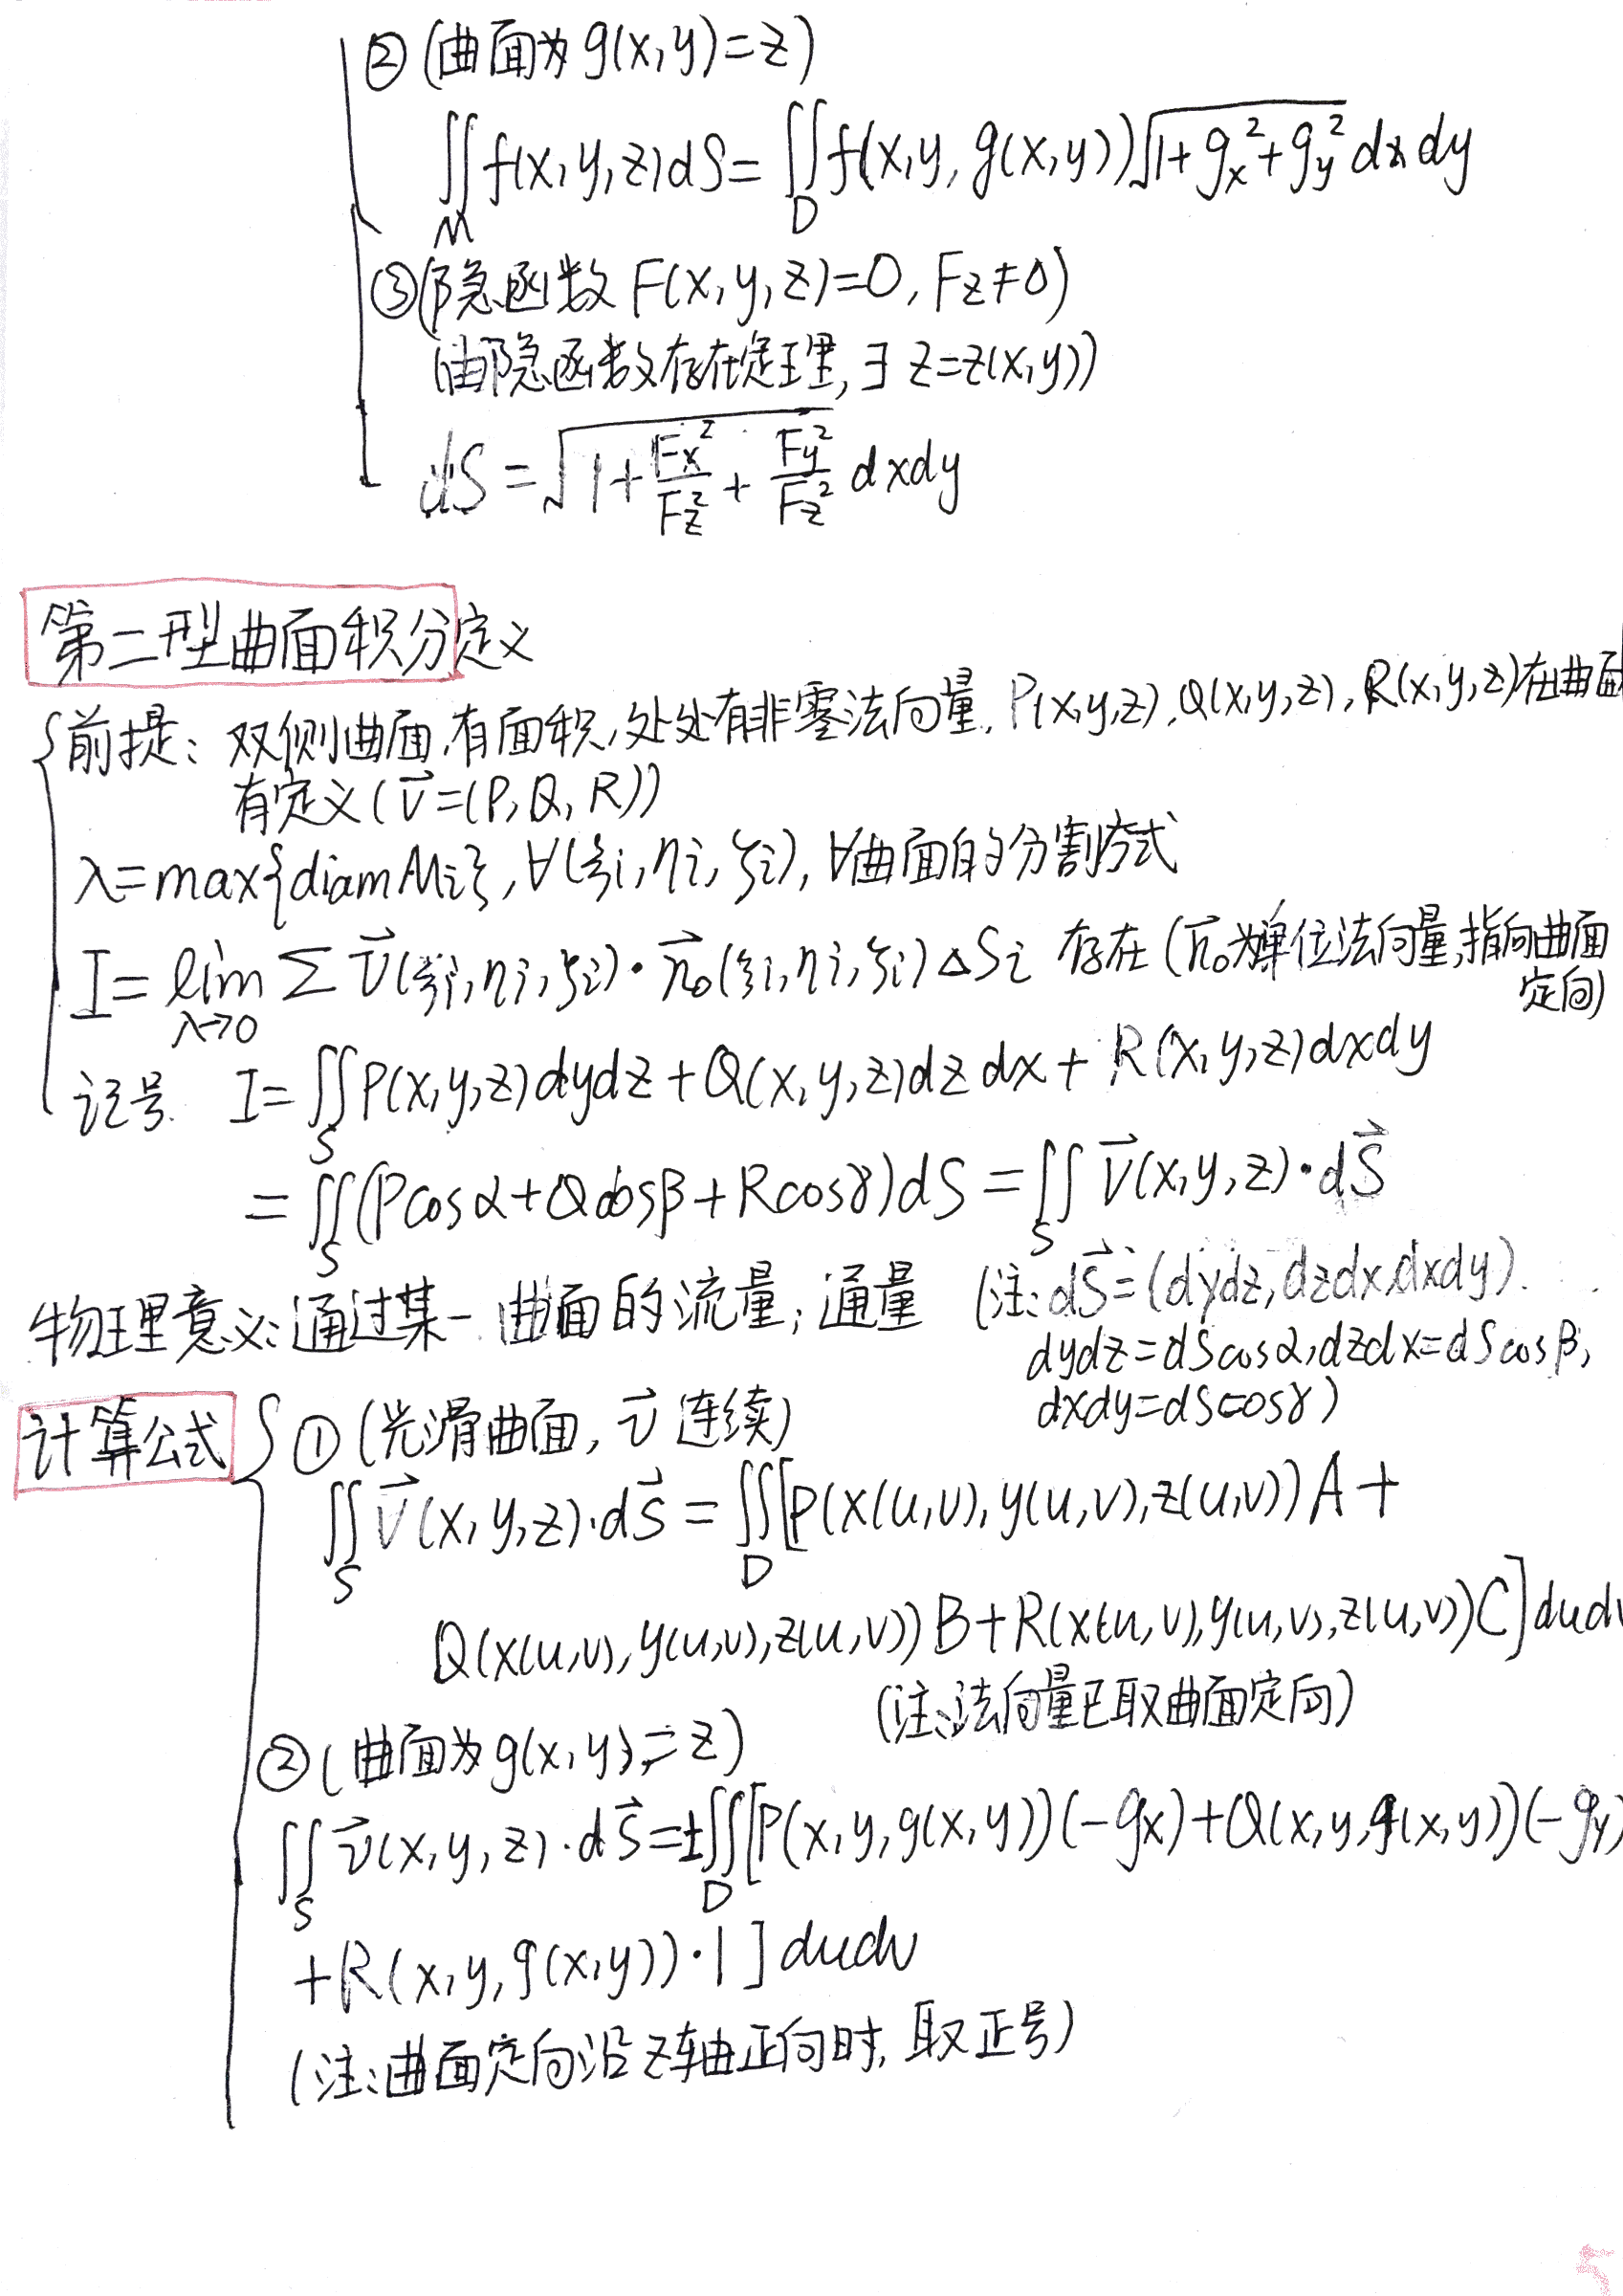 ② (曲面为 g(x,y)=z)
∬_M f(x,y,z)dS = ∬_D f(x,y,g(x,y))√(1+g_x²+g_y²) dxdy
③ (隐函数 F(x,y,z)=0, Fz≠0)
(由隐函数存在定理, ∃ z=z(x,y))
dS = √(1+Fx²/Fz² + Fy²/Fz²) dxdy
第二型曲面积分定义
前提: 双侧曲面,有面积,处处有非零法向量, P(x,y,z), Q(x,y,z), R(x,y,z)在曲面
有定义(v⃗=(P,Q,R))
λ=max{diam Mi}, ∀(ξi,ηi,ζi), ∀曲面的分割方式
I = lim_{λ→0} Σ v⃗(ξi,ηi,ζi)·n⃗₀(ξi,ηi,ζi)ΔSi 存在 (n⃗₀为单位法向量,指向曲面
定向)
记号. I=∬_S P(x,y,z)dydz+Q(x,y,z)dzdx+R(x,y,z)dxdy
=∬_S (Pcosα+Qcosβ+Rcosγ)dS = ∬_S v⃗(x,y,z)·dS⃗
物理意义: 通过某一曲面的流量; 通量 (注: dS⃗=(dydz, dzdx, dxdy).
dydz=dScosα, dzdx=dScosβ,
dxdy=dScosγ)
计算公式 ① (光滑曲面, v⃗ 连续)
∬_S v⃗(x,y,z)·dS⃗ = ∬_D [P(x(u,v),y(u,v),z(u,v))A+
Q(x(u,v),y(u,v),z(u,v))B+R(x(u,v),y(u,v),z(u,v))C]dudv
(注:法向量已取曲面定向)
② (曲面为g(x,y)=z)
∬_S v⃗(x,y,z)·dS⃗=±∬_D [P(x,y,g(x,y))(-gx)+Q(x,y,g(x,y))(-gy)
+R(x,y,g(x,y))·1]dudv
(注:曲面定向沿z轴正向时, 取正号)
5